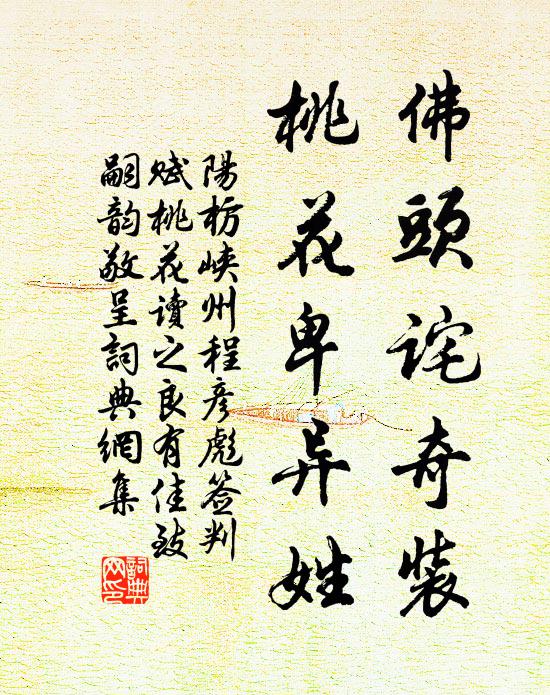 佛頭詫奇裝
桃花卑异姓
陽枋峽州程彦彪簽判
賦桃花讀之良有佳致
嗣韵敬呈詞典網集
詞典
网印